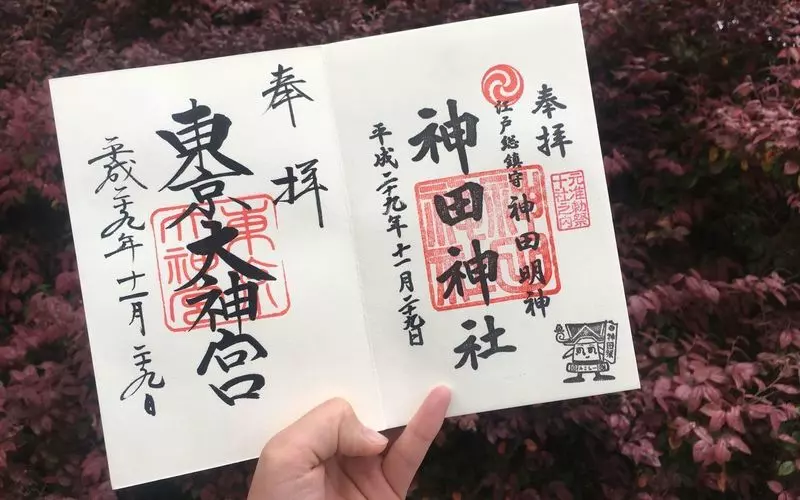 奉拝
元准勅祭
十社之内
江戸総鎮守 神田明神
神田神社
平成二十九年十一月二十九日
みこしー
奉拝
東京大神宮
東京
大神宮
平成二十九年十一月二十九日